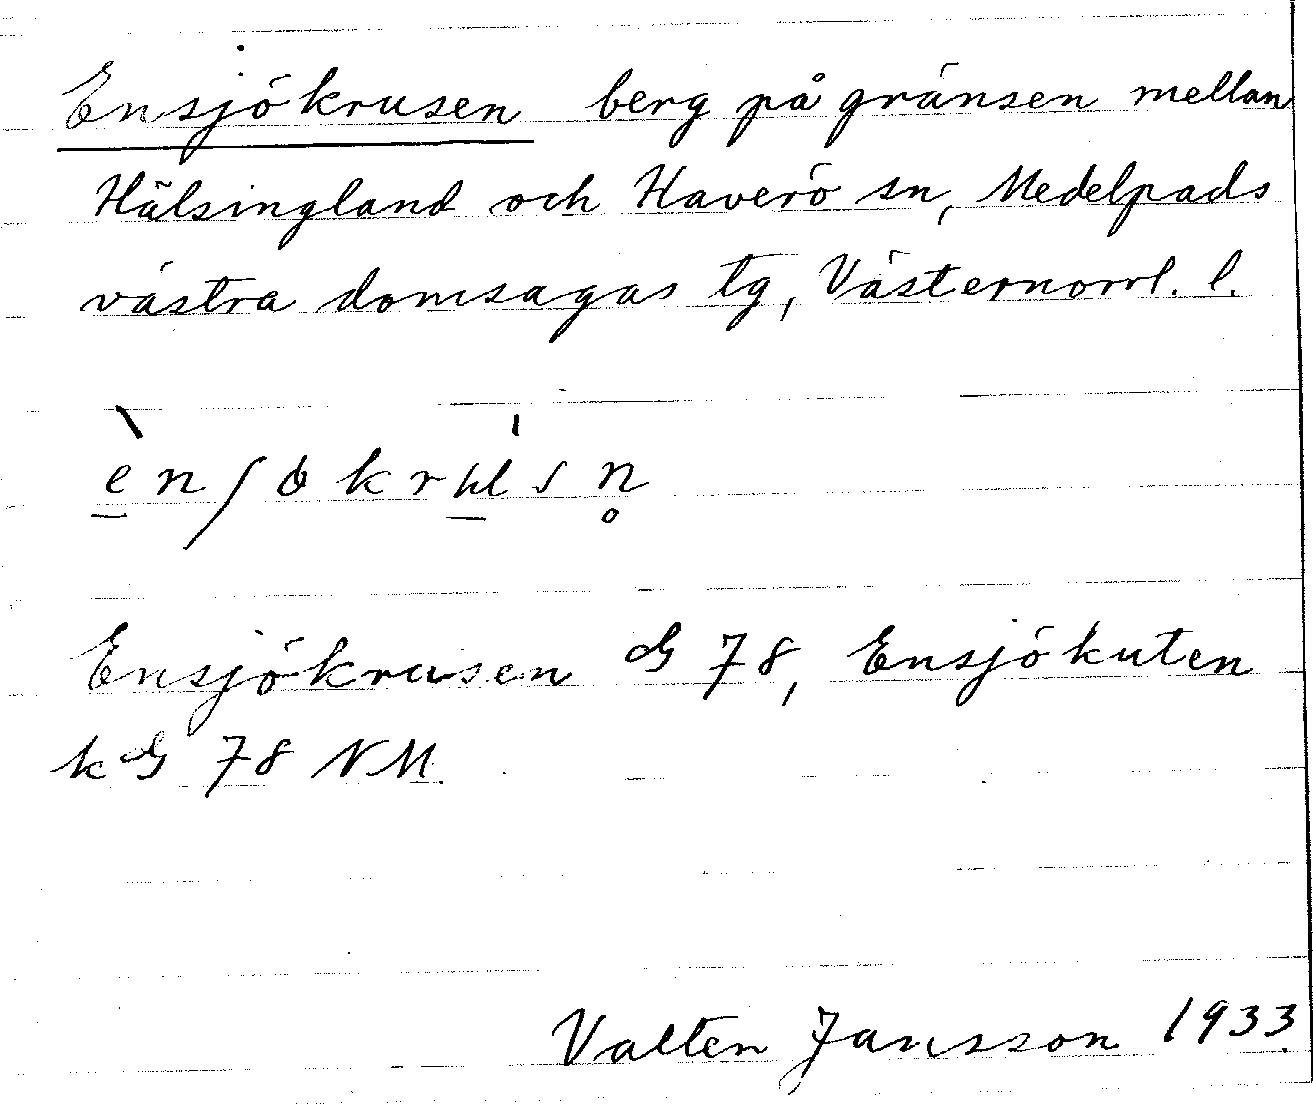 Ensjökrusen berg på gränsen mellan
Hälsingland och Haverö sn, Medelpads
västra domsagas tg, Västernorrl. l.
Ensjökrusen G 78, Ensjökuten
k G 78 NM.
Valter Jansson 1933.